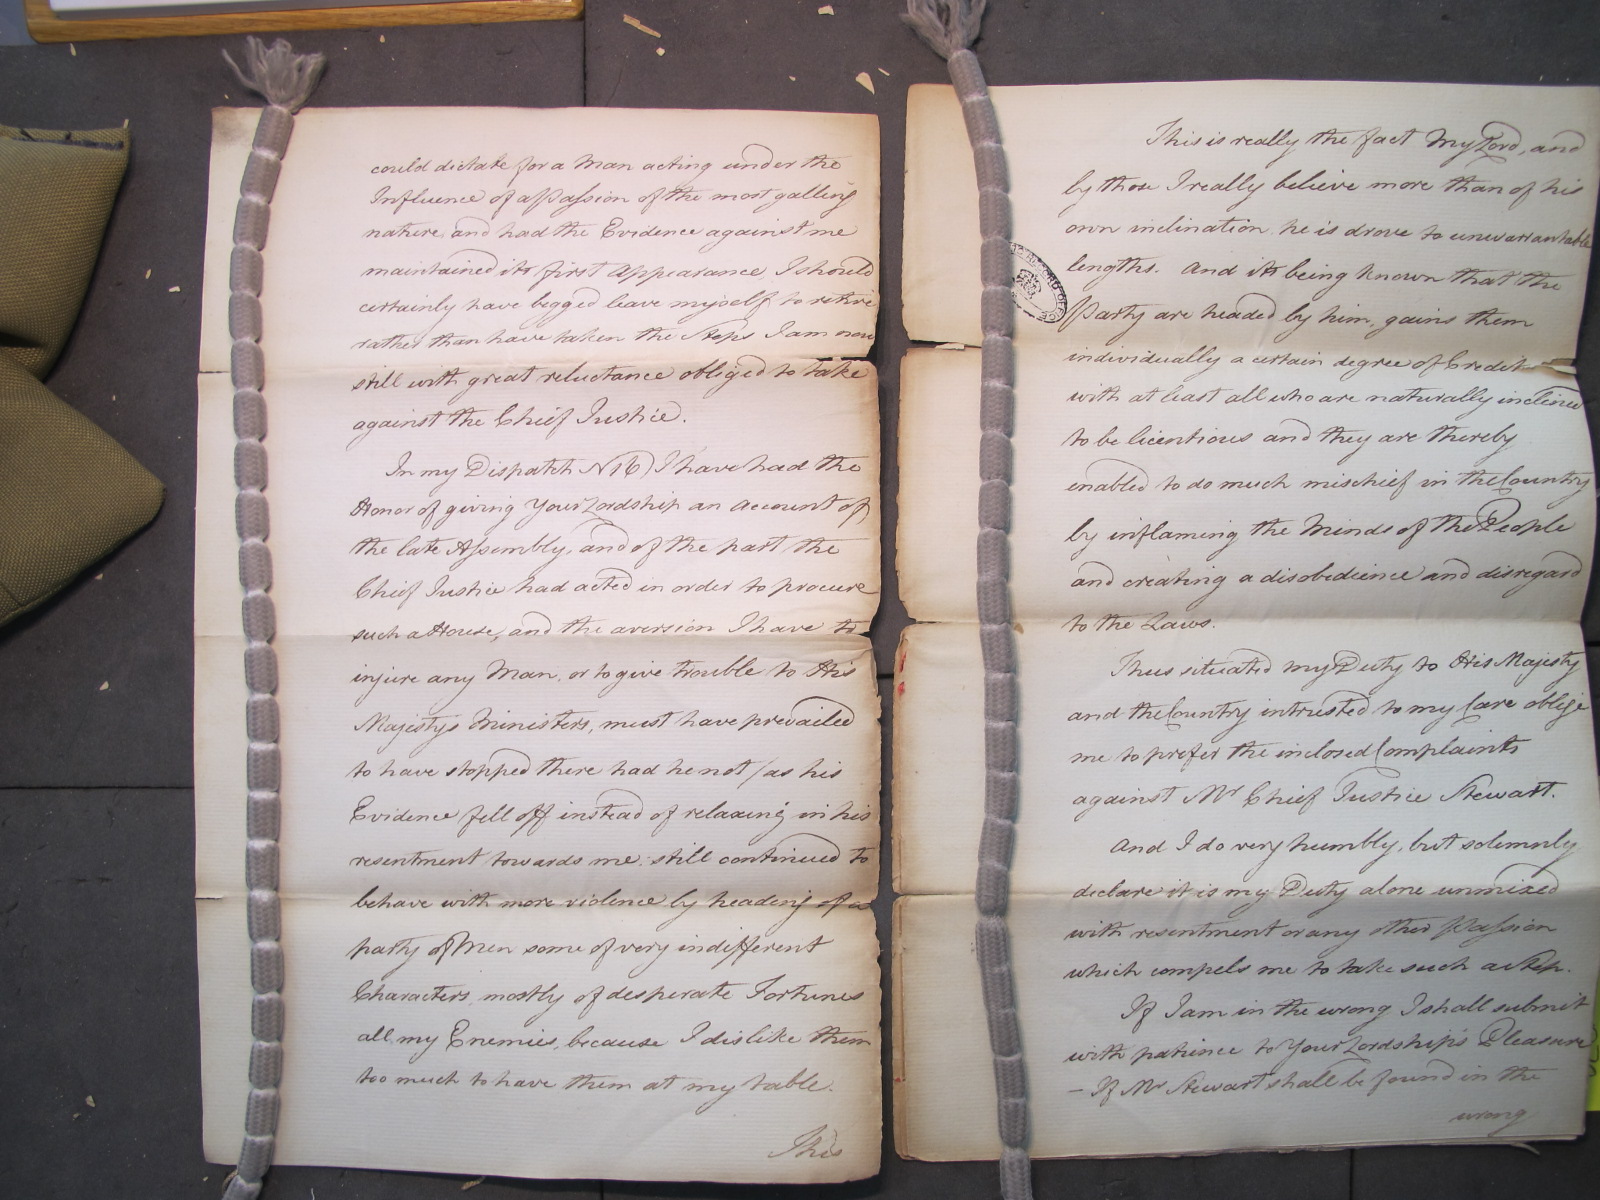 could dictate for a Man acting under the
Influence of a Passion of the most galling
nature, and had the Evidence against me
maintained its first Appearance I should
certainly have begged leave myself to retire
rather than have taken the Steps I am now
still with great reluctance obliged to take
against the Chief Justice.
In my Dispatch N 16) I have had the
Honor of giving Your Lordship an Account of
the late Assembly, and of the part the
Chief Justice had acted in order to procure
such a House, and the aversion I have to
injure any Man, or to give trouble to His
Majestys Ministers, must have prevailed
to have stopped there had he not /as his
Evidence fell off instead of relaxing in his
resentment towards me, still continued to
behave with more violence by heading of a
party of Men some of very indifferent
Characters, mostly of desperate Fortunes
all my Enemies, because I dislike them
too much to have them at my table.
This
This is really the fact My Lord, and
by those I really believe more than of his
own inclination he is drove to unwarrantable
lengths. And its being known that the
Party are headed by him, gains them
individually a certain degree of Credit
with at least all who are naturally inclined
to be licentious and they are thereby
enabled to do much mischief in the Country
by inflaming the Minds of the People
and creating a disobedience and disregard
to the Laws.
Thus situated my Duty to His Majesty
and the Country intrusted to my Care oblige
me to prefer the inclosed Complaints
against Mr Chief Justice Stewart.
And I do very humbly, but solemnly
declare it is my Duty alone unmixed
with resentment or any other Passion
which compels me to take such a Step.
If I am in the wrong I shall submit
with patience to Your Lordship's Pleasure
— If Mr Stewart shall be found in the
wrong
RECORD OFFICE